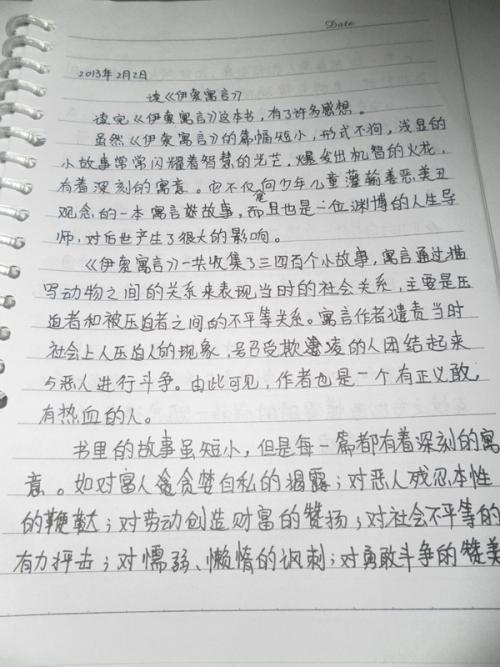 Date
2013年2月2日
读《伊索寓言》
读完《伊索寓言》这本书，有了许多感想。
虽然《伊索寓言》的篇幅短小，形式不拘，浅显的
小故事常常闪耀着智慧的光芒，爆发出机智的火花，
有着深刻的寓意。它不仅是向少年儿童灌输善恶美丑
观念的一本寓言故事，而且也是一位渊博的人生导
师，对后世产生了很大的影响。
《伊索寓言》一共收集了三四百个小故事，寓言通过描
写动物之间的关系来表现当时的社会关系，主要是压
迫者和被压迫者之间的不平等关系。寓言作者谴责当时
社会上人压迫人的现象，号召受欺凌的人团结起来
与恶人进行斗争。由此可见，作者也是一个有正义敢，
有热血的人。
书里的故事虽短小，但是每一篇都有着深刻的寓
意。如对富人贪婪自私的揭露；对恶人残忍本性
的鞭鞑；对劳动创造财富的赞扬；对社会不平等的
有力抨击；对懦弱、懒惰的讽刺；对勇敢斗争的赞美